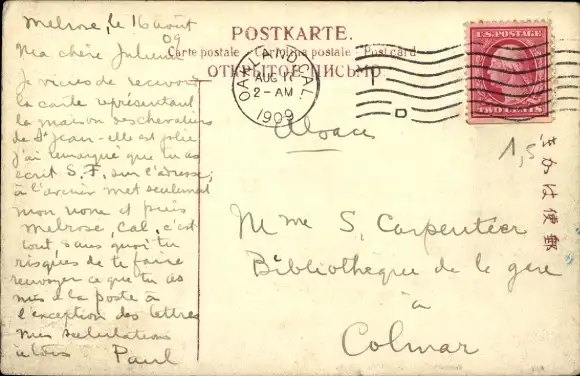 Melrose, le 16 août
09
Ma chère Julienne
Je viens de recevoir
la carte représentant
la maison des chevaliers
de St Jean - elle est jolie
j'ai remarqué que tu as
écrit S. F. sur l'adresse,
à l'avenir met seulement
mon nom et puis
Melrose, Cal. c'est
tout sans quoi tu
risques de te faire
renvoyer ce que tu as
mis à la poste à
l'exception des lettres
mes salutations
à tous Paul
POSTKARTE.
Carte postale - Cartolina postale - Post card
ОТКРЫТОЕ ПИСЬМО
OAKLAND, CAL.
AUG 17
2-AM
1909
U.S. POSTAGE
TWO CENTS
Alsace
1,5
郵便はかき
Mme S. Carpentier
Bibliothèque de la gare
à
Colmar